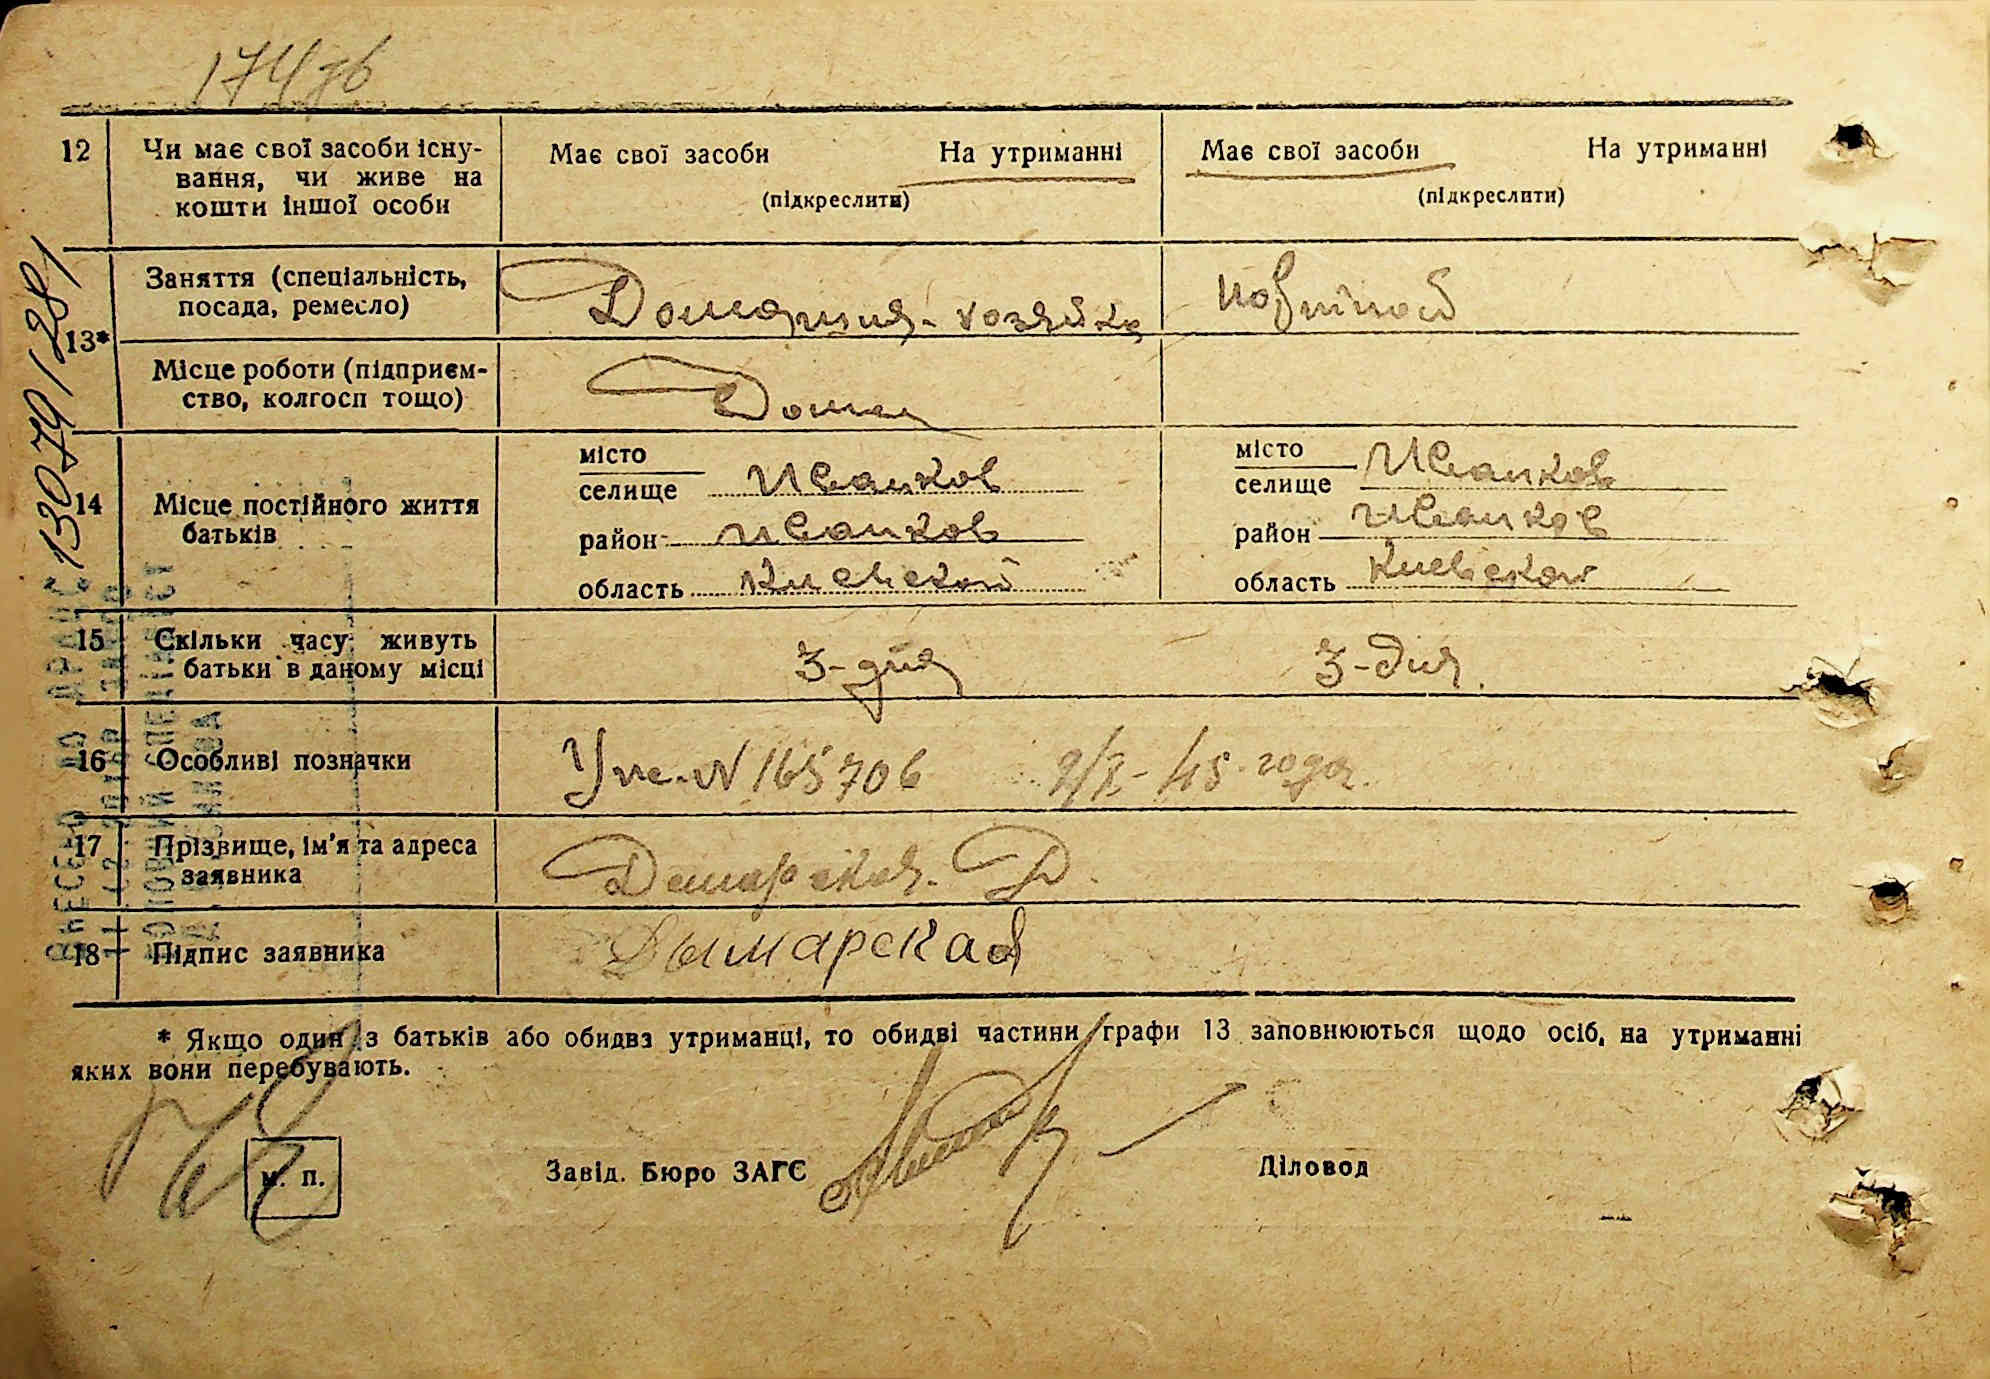 12 Чи має свої засоби існу-
вання, чи живе на
кошти іншої особи
Має свої засоби На утриманні
(підкреслити)
Має свої засоби На утриманні
(підкреслити)
13079/1281
13*
Заняття (спеціальність,
посада, ремесло)
Домашняя-хозяйка
Місце роботи (підприєм-
ство, колгосп тощо)
Дома
14 Місце постійного життя
батьків
місто
селище Иванков
район Иванков
область Киевской
місто
селище Иванков
район Иванков
область Киевской
15 Скільки часу живуть
батьки в даному місці
3-дня 3-дня.
16 Особливі позначки
N 165706 45 года.
17 Прізвище, ім'я та адреса
заявника
Демарская. Д.
18 Підпис заявника
Дымарская
* Якщо один з батьків або обидва утриманці, то обидві частини графи 13 заповнюються щодо осіб, на утриманні
яких вони перебувають.
м. п.
Завід. Бюро ЗАГС
Діловод